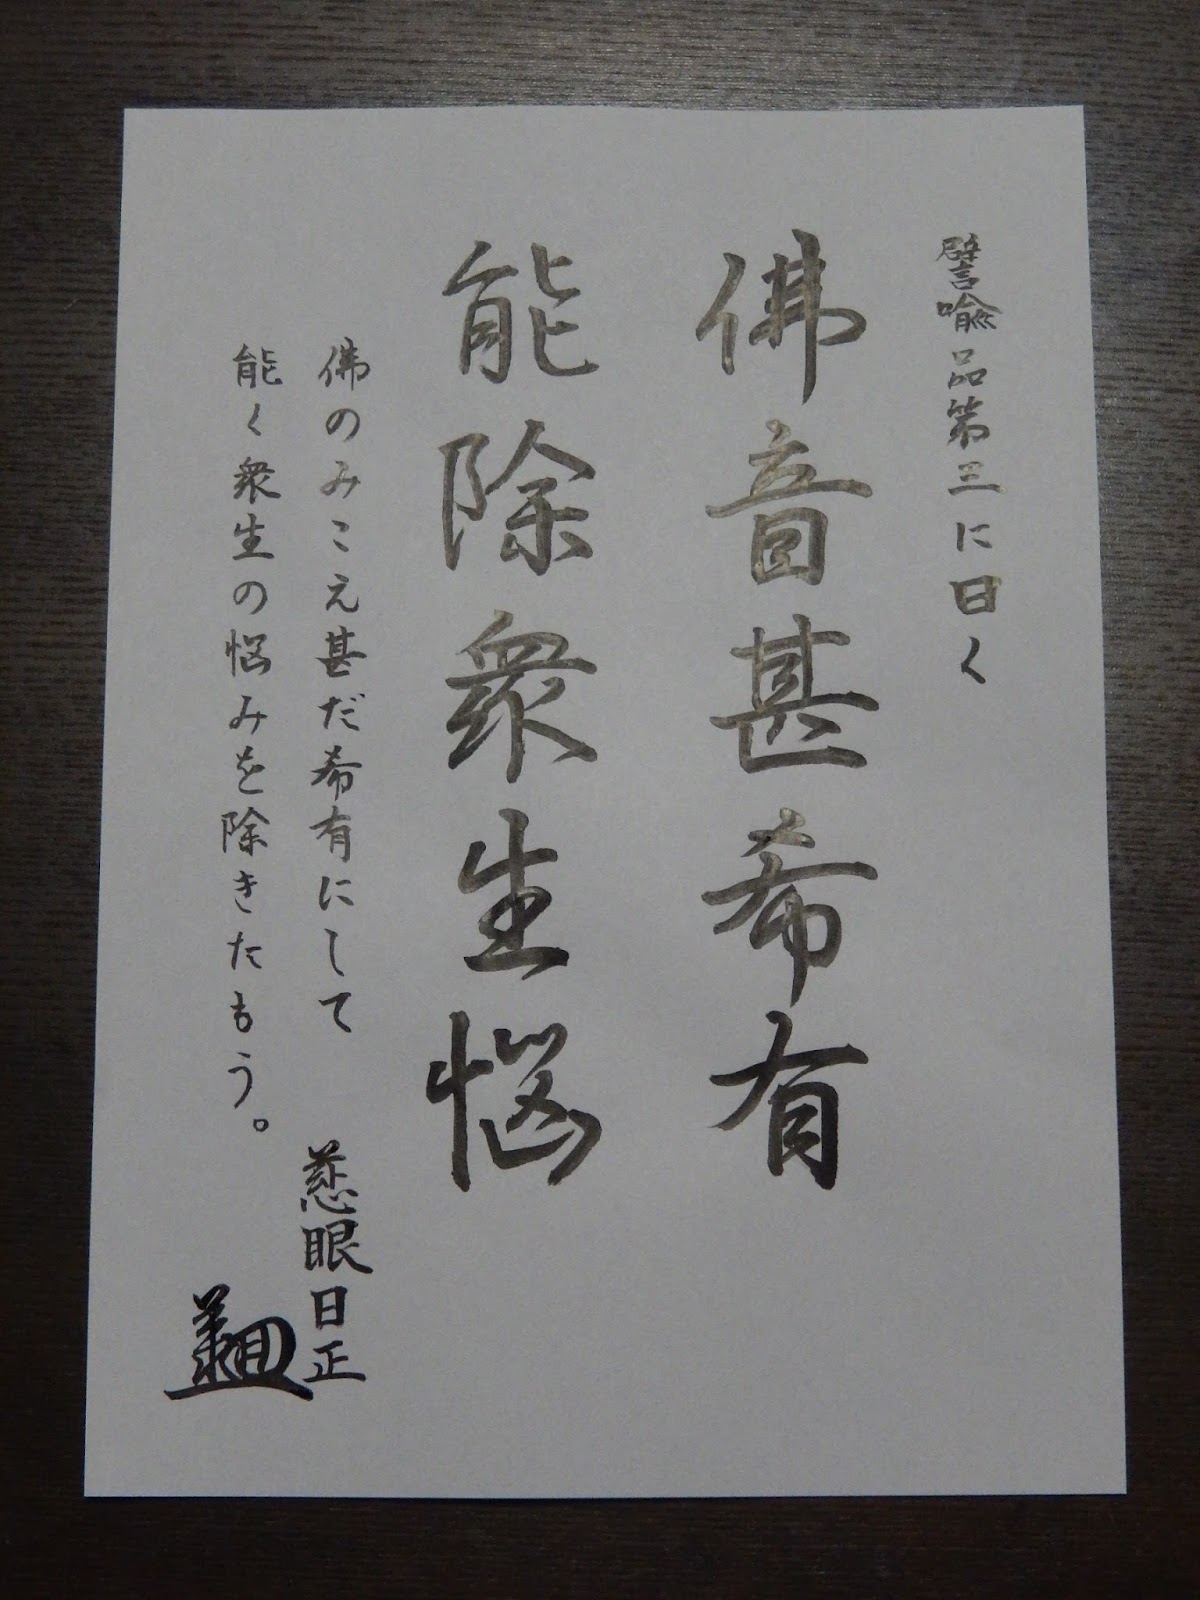 譬喩品第三に曰く
佛音甚希有
能除衆生惱
佛のみこえ甚だ希有にして
能く衆生の悩みを除きたもう。
慈眼日正